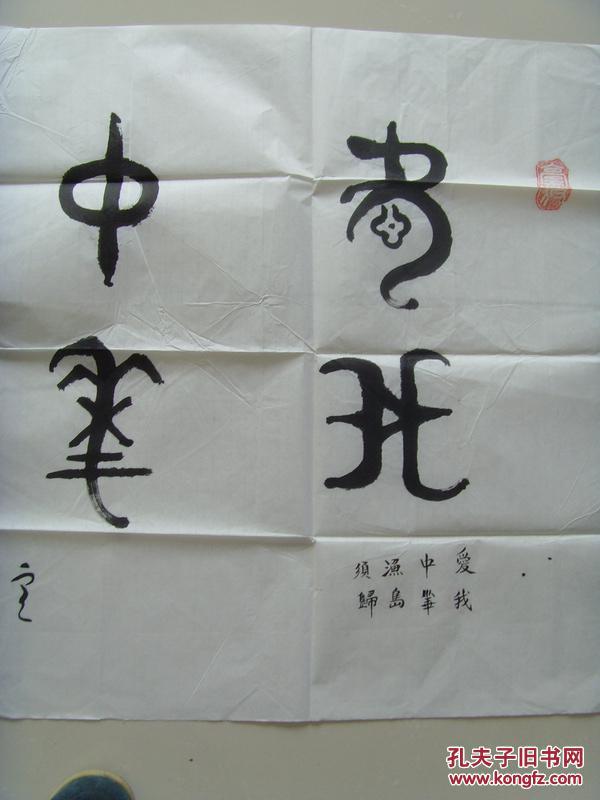 愛我
中華
愛我
中華
漁島
須歸
孔夫子旧书网
www.kongfz.com